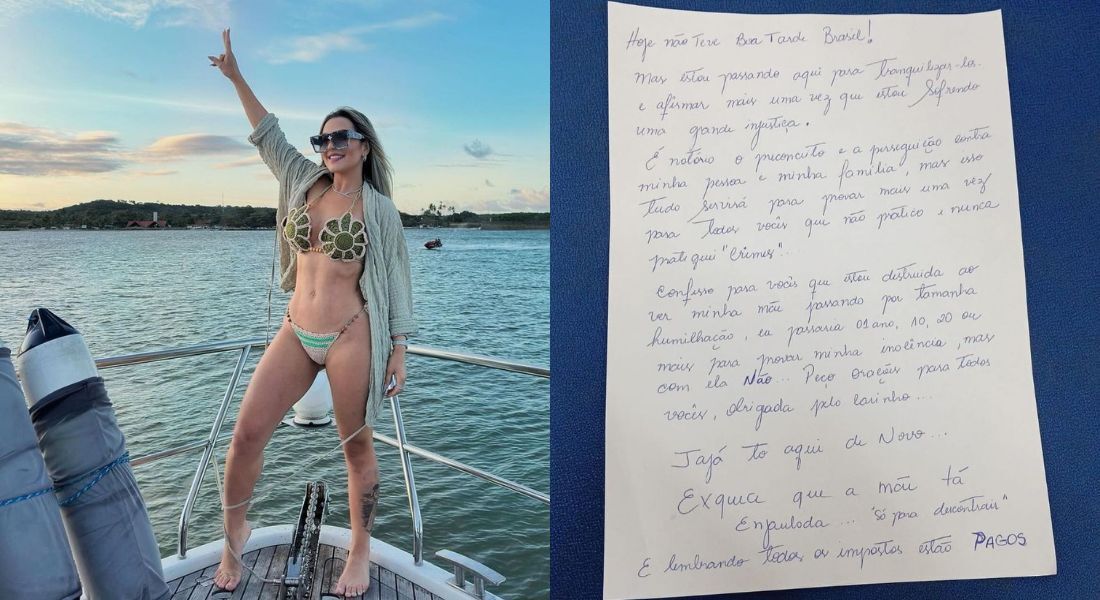 Hoje não Teve Boa Tarde Brasil!
Mas estou passando aqui para Tranquilizar-los
e afirmar mais uma vez que estou Sofrendo
uma grande injustiça.
É notório o preconceito e a perseguição contra
minha pessoa e minha família, mas isso
tudo servirá para provar mais uma vez
para todos vocês que não pratico e nunca
pratiquei "Crimes"...
Confesso para vocês que estou destruida ao
ver minha mãe passando por tamanha
humilhação, eu passaria 01 ano, 10, 20 ou
mais para provar minha inocência, mas
com ela Não... Peço orações para todos
vocês, obrigada pelo carinho...
Jajá to aqui de Novo...
Exquece que a mãe tá
Enjaulada... "só para descontrair"
E lembrando todos os impostos estão PAGOS